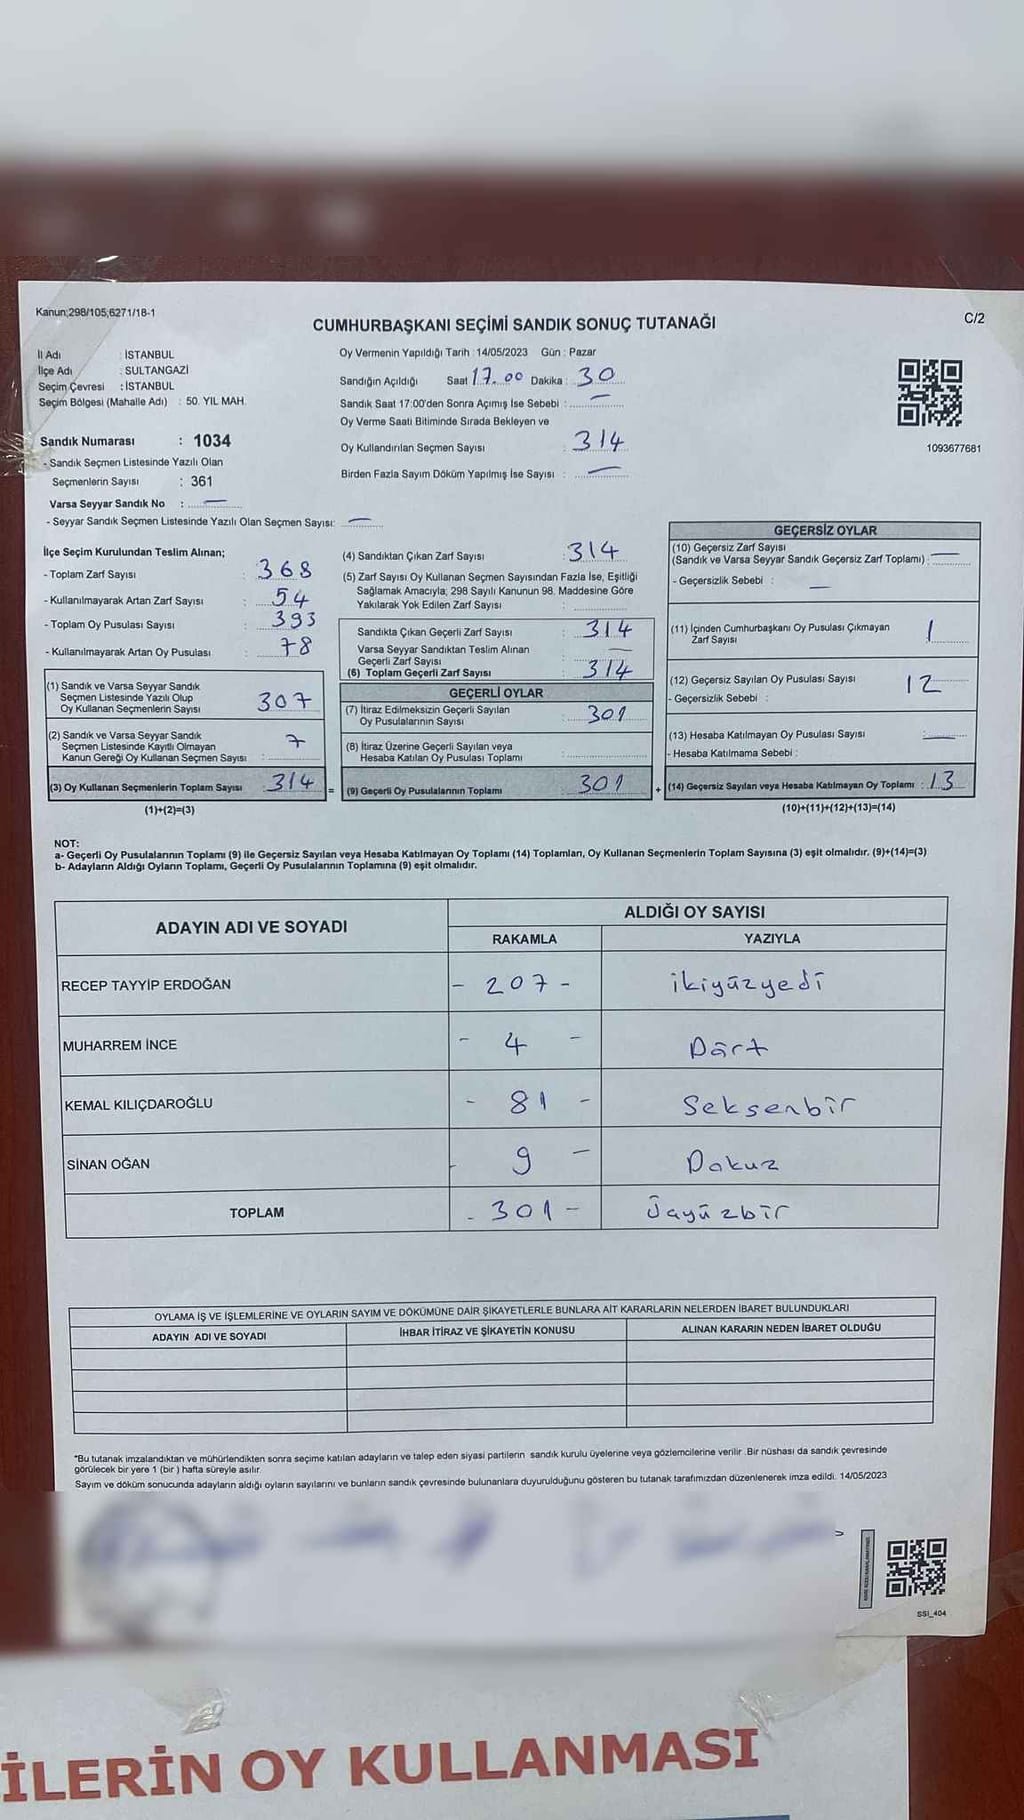 Kanun;298/105;6271/18-1
C/2
CUMHURBAŞKANI SEÇİMİ SANDIK SONUÇ TUTANAĞI
İl Adı : İSTANBUL
İlçe Adı : SULTANGAZİ
Seçim Çevresi : İSTANBUL
Seçim Bölgesi (Mahalle Adı) : 50. YIL MAH.
Sandık Numarası : 1034
- Sandık Seçmen Listesinde Yazılı Olan
Seçmenlerin Sayısı : 361
Varsa Seyyar Sandık No : —
- Seyyar Sandık Seçmen Listesinde Yazılı Olan Seçmen Sayısı: —
Oy Vermenin Yapıldığı Tarih : 14/05/2023 Gün : Pazar
Sandığın Açıldığı Saat 17.00 Dakika : 30
Sandık Saat 17:00'den Sonra Açımış İse Sebebi : —
Oy Verme Saati Bitiminde Sırada Bekleyen ve
Oy Kullandırılan Seçmen Sayısı : 314
Birden Fazla Sayım Döküm Yapılmış İse Sayısı : —
1093677681
İlçe Seçim Kurulundan Teslim Alınan;
- Toplam Zarf Sayısı : 368
- Kullanılmayarak Artan Zarf Sayısı : 54
- Toplam Oy Pusulası Sayısı : 393
- Kullanılmayarak Artan Oy Pusulası : 78
(1) Sandık ve Varsa Seyyar Sandık
Seçmen Listesinde Yazılı Olup
Oy Kullanan Seçmenlerin Sayısı : 307
(2) Sandık ve Varsa Seyyar Sandık
Seçmen Listesinde Kayıtlı Olmayan
Kanun Gereği Oy Kullanan Seçmen Sayısı : 7
(3) Oy Kullanan Seçmenlerin Toplam Sayısı : 314 =
(1)+(2)=(3)
(4) Sandıktan Çıkan Zarf Sayısı : 314
(5) Zarf Sayısı Oy Kullanan Seçmen Sayısından Fazla İse, Eşitliği
Sağlamak Amacıyla; 298 Sayılı Kanunun 98. Maddesine Göre
Yakılarak Yok Edilen Zarf Sayısı :
Sandıkta Çıkan Geçerli Zarf Sayısı : 314
Varsa Seyyar Sandıktan Teslim Alınan
Geçerli Zarf Sayısı : —
(6) Toplam Geçerli Zarf Sayısı : 314
GEÇERLİ OYLAR
(7) İtiraz Edilmeksizin Geçerli Sayılan
Oy Pusulalarının Sayısı : 301
(8) İtiraz Üzerine Geçerli Sayılan veya
Hesaba Katılan Oy Pusulası Toplamı :
(9) Geçerli Oy Pusulalarının Toplamı : 301 +
GEÇERSİZ OYLAR
(10) Geçersiz Zarf Sayısı
(Sandık ve Varsa Seyyar Sandık Geçersiz Zarf Toplamı) : —
- Geçersizlik Sebebi : —
(11) İçinden Cumhurbaşkanı Oy Pusulası Çıkmayan
Zarf Sayısı : 1
(12) Geçersiz Sayılan Oy Pusulası Sayısı : 12
- Geçersizlik Sebebi :
(13) Hesaba Katılmayan Oy Pusulası Sayısı : —
- Hesaba Katılmama Sebebi :
(14) Geçersiz Sayılan veya Hesaba Katılmayan Oy Toplamı : 13
(10)+(11)+(12)+(13)=(14)
NOT:
a- Geçerli Oy Pusulalarının Toplamı (9) ile Geçersiz Sayılan veya Hesaba Katılmayan Oy Toplamı (14) Toplamları, Oy Kullanan Seçmenlerin Toplam Sayısına (3) eşit olmalıdır. (9)+(14)=(3)
b- Adayların Aldığı Oyların Toplamı, Geçerli Oy Pusulalarının Toplamına (9) eşit olmalıdır.
ADAYIN ADI VE SOYADI
ALDIĞI OY SAYISI
RAKAMLA YAZIYLA
RECEP TAYYİP ERDOĞAN - 207 - ikiyüzyedi
MUHARREM İNCE - 4 - Dört
KEMAL KILIÇDAROĞLU - 81 - Seksenbir
SİNAN OĞAN - 9 - Dokuz
TOPLAM - 301 - üçyüzbir
OYLAMA İŞ VE İŞLEMLERİNE VE OYLARIN SAYIM VE DÖKÜMÜNE DAİR ŞİKAYETLERLE BUNLARA AİT KARARLARIN NELERDEN İBARET BULUNDUKLARI
ADAYIN ADI VE SOYADI İHBAR İTİRAZ VE ŞİKAYETİN KONUSU ALINAN KARARIN NEDEN İBARET OLDUĞU
*Bu tutanak imzalandıktan ve mühürlendikten sonra seçime katılan adayların ve talep eden siyasi partilerin sandık kurulu üyelerine veya gözlemcilerine verilir .Bir nüshası da sandık çevresinde
görülecek bir yere 1 (bir ) hafta süreyle asılır.
Sayım ve döküm sonucunda adayların aldığı oyların sayılarını ve bunların sandık çevresinde bulunanlara duyurulduğunu gösteren bu tutanak tarafımızdan düzenlenerek imza edildi. 14/05/2023
SSI_404
İLERİN OY KULLANMASI